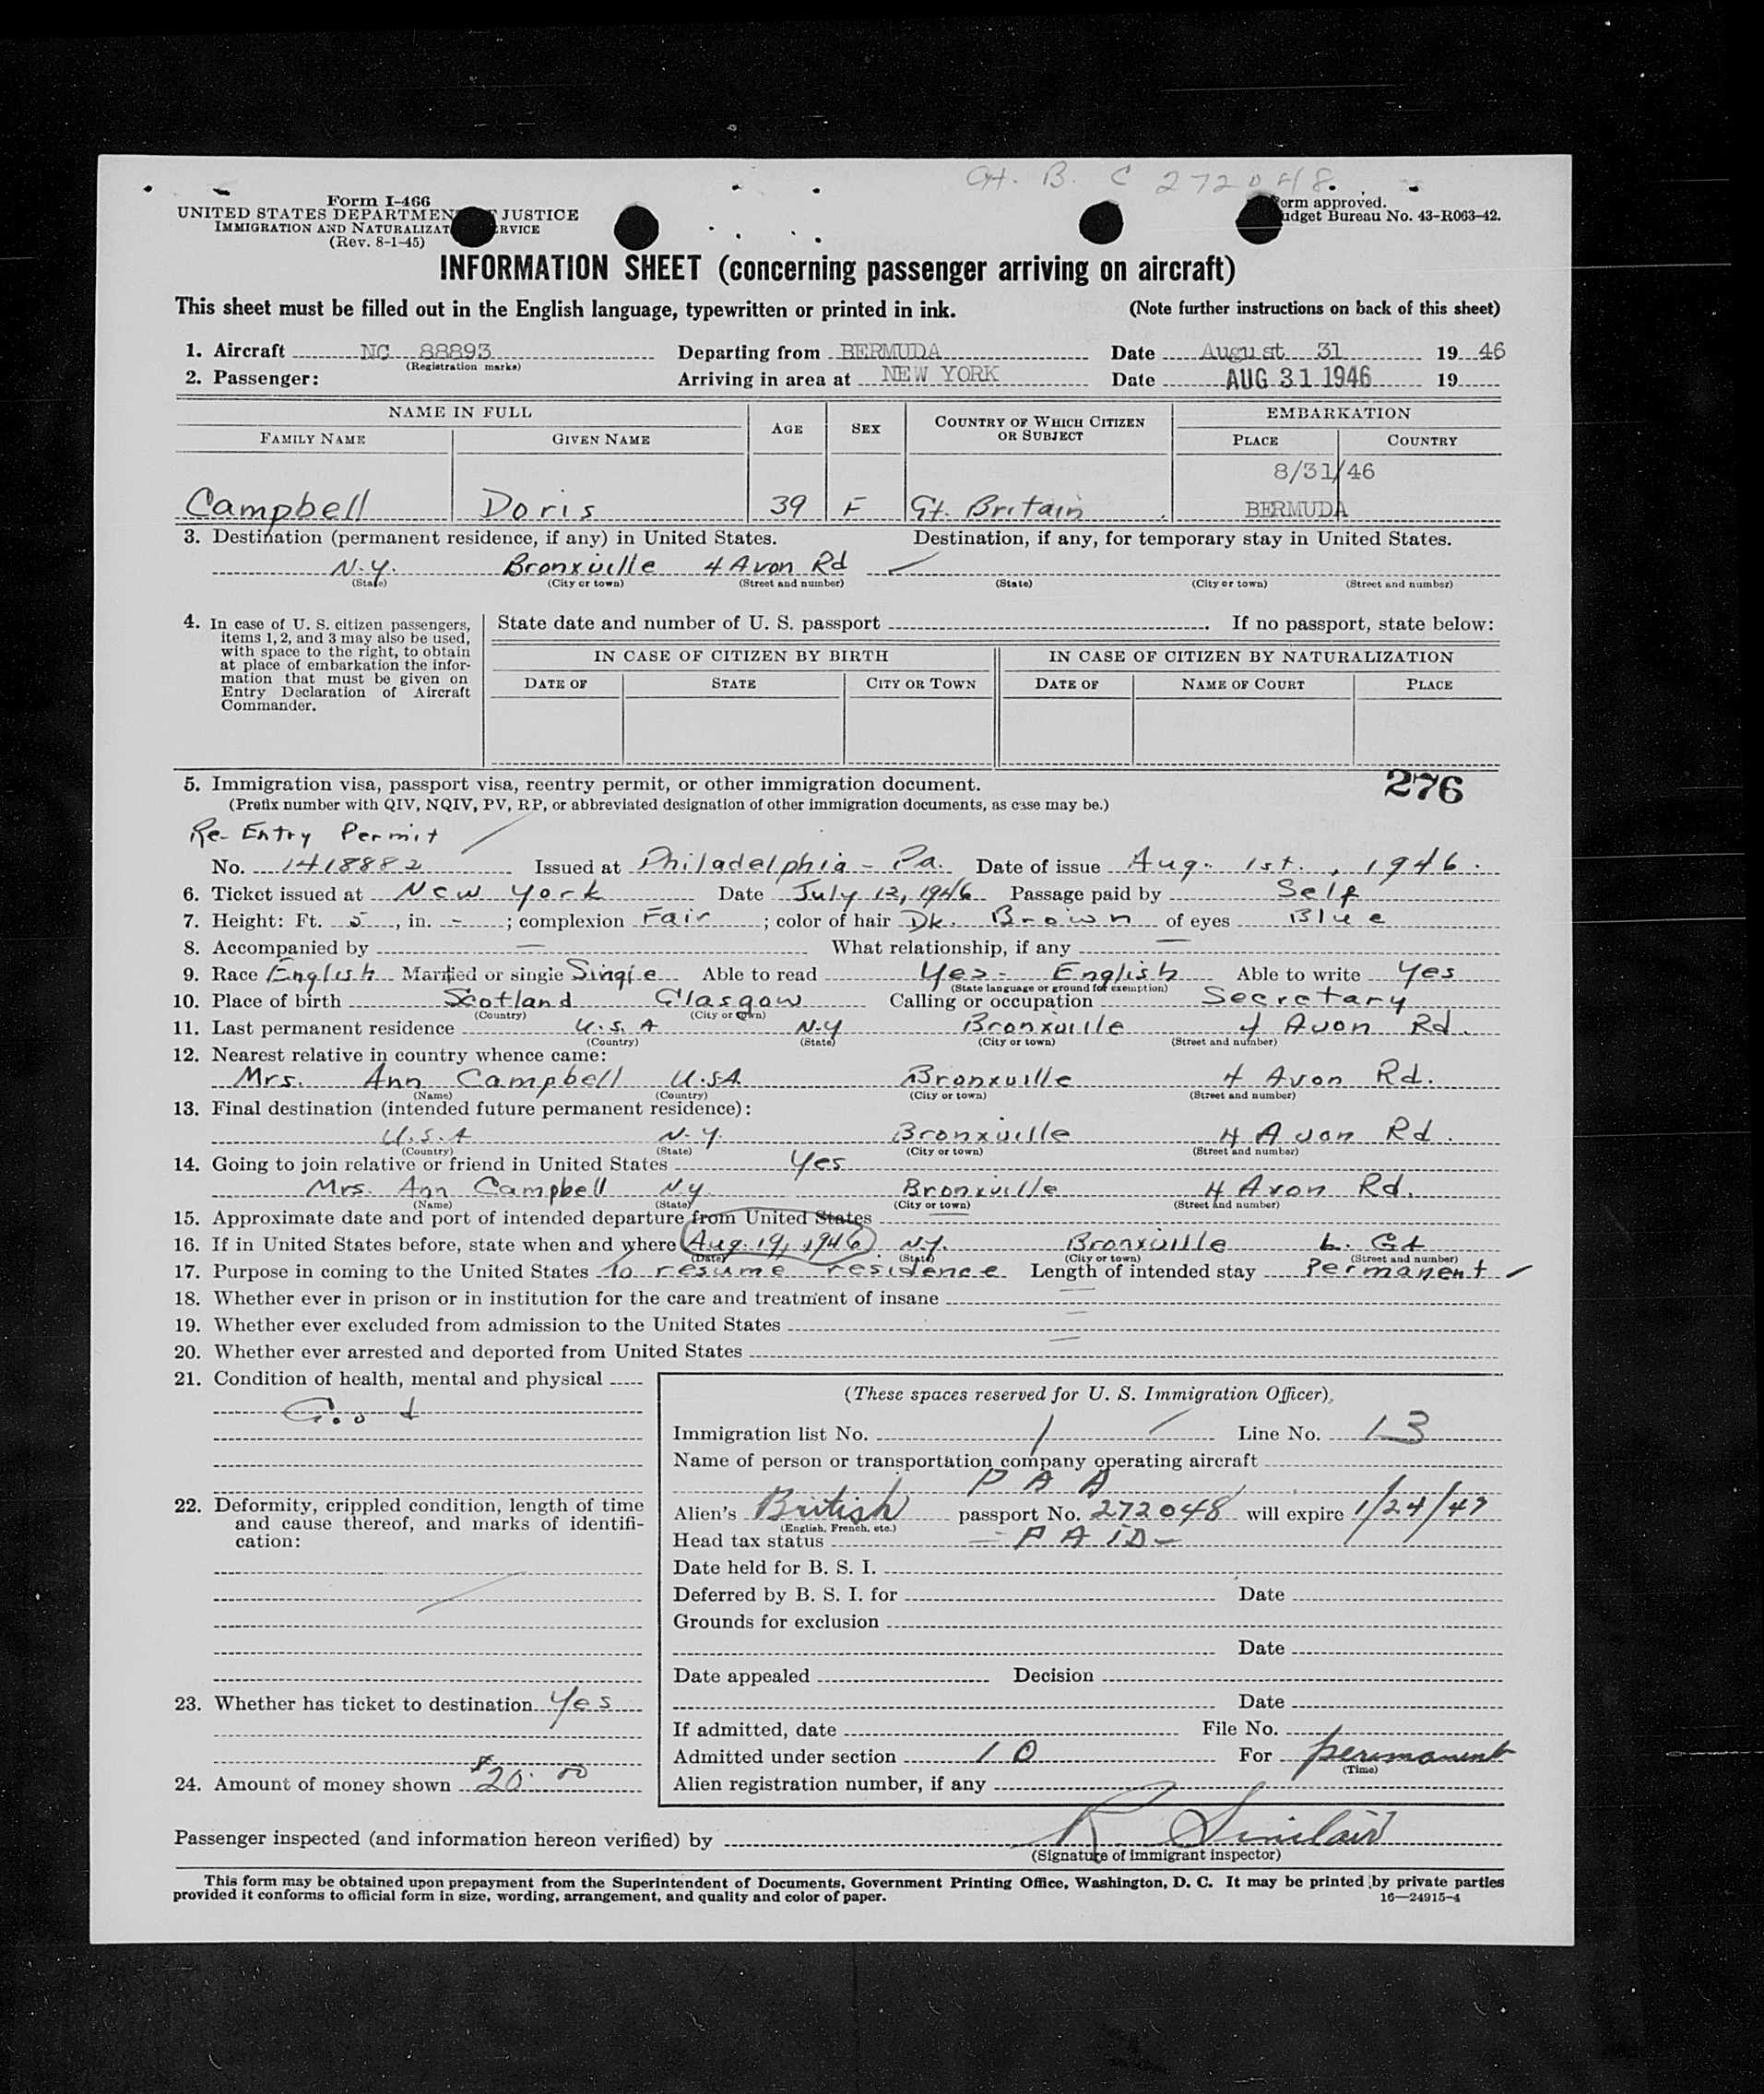 Gt. B. C 272048
Form I-466
UNITED STATES DEPARTMENT JUSTICE
IMMIGRATION AND NATURALIZAT RVICE
(Rev. 8-1-45)
orm approved.
udget Bureau No. 43-R063-42.
INFORMATION SHEET (concerning passenger arriving on aircraft)
This sheet must be filled out in the English language, typewritten or printed in ink. (Note further instructions on back of this sheet)
1. Aircraft NC 88893 Departing from BERMUDA Date August 31 19 46
(Registration marks)
2. Passenger: Arriving in area at NEW YORK Date AUG 31 1946 19
NAME IN FULL AGE SEX COUNTRY OF WHICH CITIZEN OR SUBJECT EMBARKATION
FAMILY NAME GIVEN NAME PLACE COUNTRY
8/31/46
Campbell Doris 39 F Gt. Britain BERMUDA
3. Destination (permanent residence, if any) in United States. Destination, if any, for temporary stay in United States.
N.Y. Bronxville 4 Avon Rd
(State) (City or town) (Street and number) (State) (City or town) (Street and number)
4. In case of U. S. citizen passengers, items 1, 2, and 3 may also be used, with space to the right, to obtain at place of embarkation the information that must be given on Entry Declaration of Aircraft Commander.
State date and number of U. S. passport . If no passport, state below:
IN CASE OF CITIZEN BY BIRTH IN CASE OF CITIZEN BY NATURALIZATION
DATE OF STATE CITY OR TOWN DATE OF NAME OF COURT PLACE
5. Immigration visa, passport visa, reentry permit, or other immigration document. 276
(Prefix number with QIV, NQIV, PV, RP, or abbreviated designation of other immigration documents, as case may be.)
Re-Entry Permit
No. 1418882 Issued at Philadelphia - Pa. Date of issue Aug. 1st, 1946.
6. Ticket issued at New York Date July 12, 1946 Passage paid by Self
7. Height: Ft. 5, in. - ; complexion Fair ; color of hair Dk. Brown of eyes Blue
8. Accompanied by — What relationship, if any —
9. Race English Married or single Single Able to read Yes - English Able to write Yes
(State language or ground for exemption)
10. Place of birth Scotland Glasgow Calling or occupation Secretary
(Country) (City or town)
11. Last permanent residence U.S.A N.Y Bronxville 4 Avon Rd.
(Country) (State) (City or town) (Street and number)
12. Nearest relative in country whence came:
Mrs. Ann Campbell U.S.A. Bronxville 4 Avon Rd.
(Name) (Country) (City or town) (Street and number)
13. Final destination (intended future permanent residence):
U.S.A N.Y. Bronxville 4 Avon Rd.
(Country) (State) (City or town) (Street and number)
14. Going to join relative or friend in United States Yes
Mrs. Ann Campbell N.Y. Bronxville 4 Avon Rd.
(Name) (State) (City or town) (Street and number)
15. Approximate date and port of intended departure from United States —
16. If in United States before, state when and where Aug. 19, 1946. N.Y. Bronxville
(Date) (State) (City or town) (Street and number)
17. Purpose in coming to the United States To resume residence Length of intended stay Permanent
18. Whether ever in prison or in institution for the care and treatment of insane —
19. Whether ever excluded from admission to the United States —
20. Whether ever arrested and deported from United States —
21. Condition of health, mental and physical
Good
22. Deformity, crippled condition, length of time and cause thereof, and marks of identification:
23. Whether has ticket to destination Yes
24. Amount of money shown $20.00
(These spaces reserved for U. S. Immigration Officer)
Immigration list No. 1 Line No. 13
Name of person or transportation company operating aircraft
P A A
Alien's British passport No. 272048 will expire 1/24/47
(English, French, etc.)
Head tax status - PAID -
Date held for B. S. I.
Deferred by B. S. I. for Date
Grounds for exclusion
Date
Date appealed Decision
Date
If admitted, date File No.
Admitted under section 10 For permanent
(Time)
Alien registration number, if any
Passenger inspected (and information hereon verified) by R. Sinclair
(Signature of immigrant inspector)
This form may be obtained upon prepayment from the Superintendent of Documents, Government Printing Office, Washington, D. C. It may be printed by private parties
provided it conforms to official form in size, wording, arrangement, and quality and color of paper. 16—24915-4